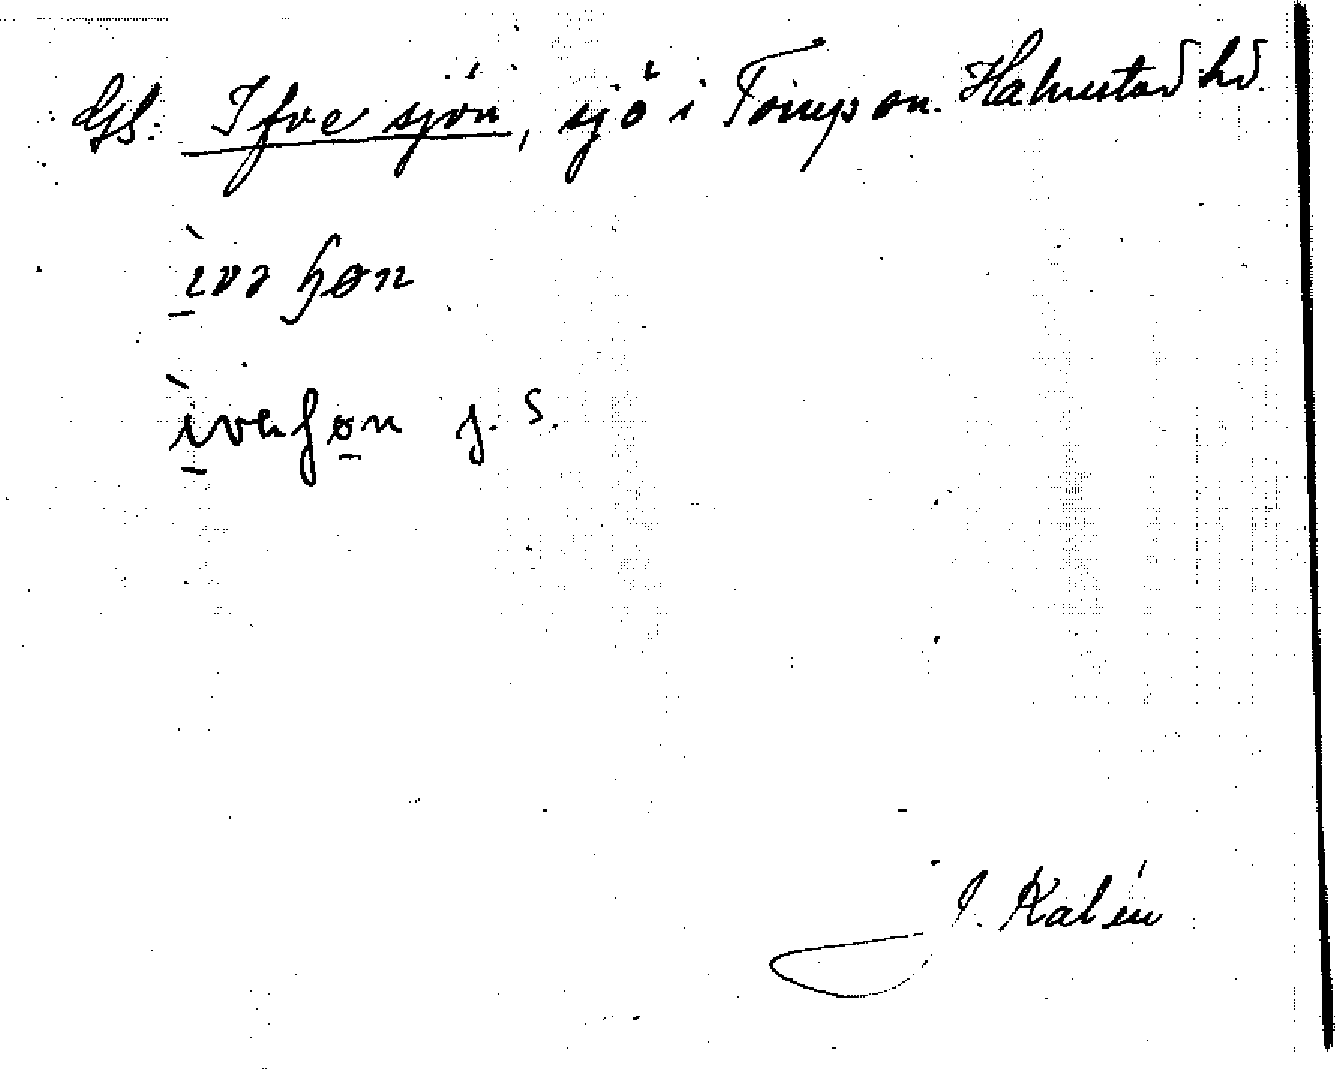 GS. Ifvesjön, sjö i Torup sn. Halmstad hd.
ìvəɧøn
ivehøn j. S.
J. Kalén